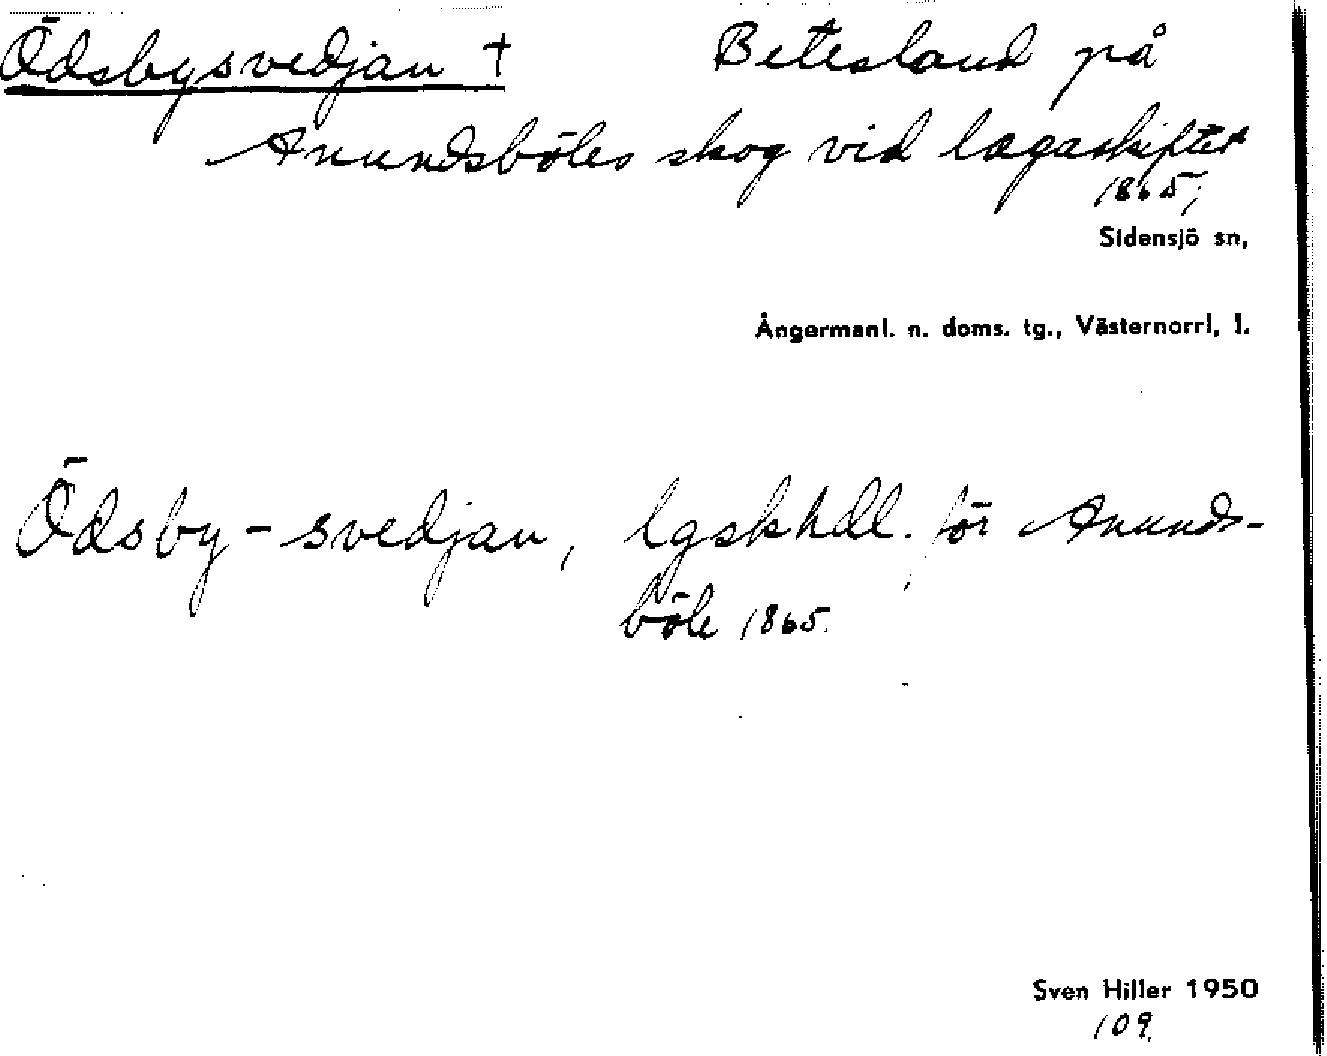 Ödsbysvedjan † Betesland på
Anundsböles skog vid lagaskiftet
1865;
Sidensjö sn,
Ångermanl. n. doms. tg., Västernorrl. l.
Ödsby-svedjan, lgskhdl. för Anunds-
böle 1865.
Sven Hiller 1950
109.